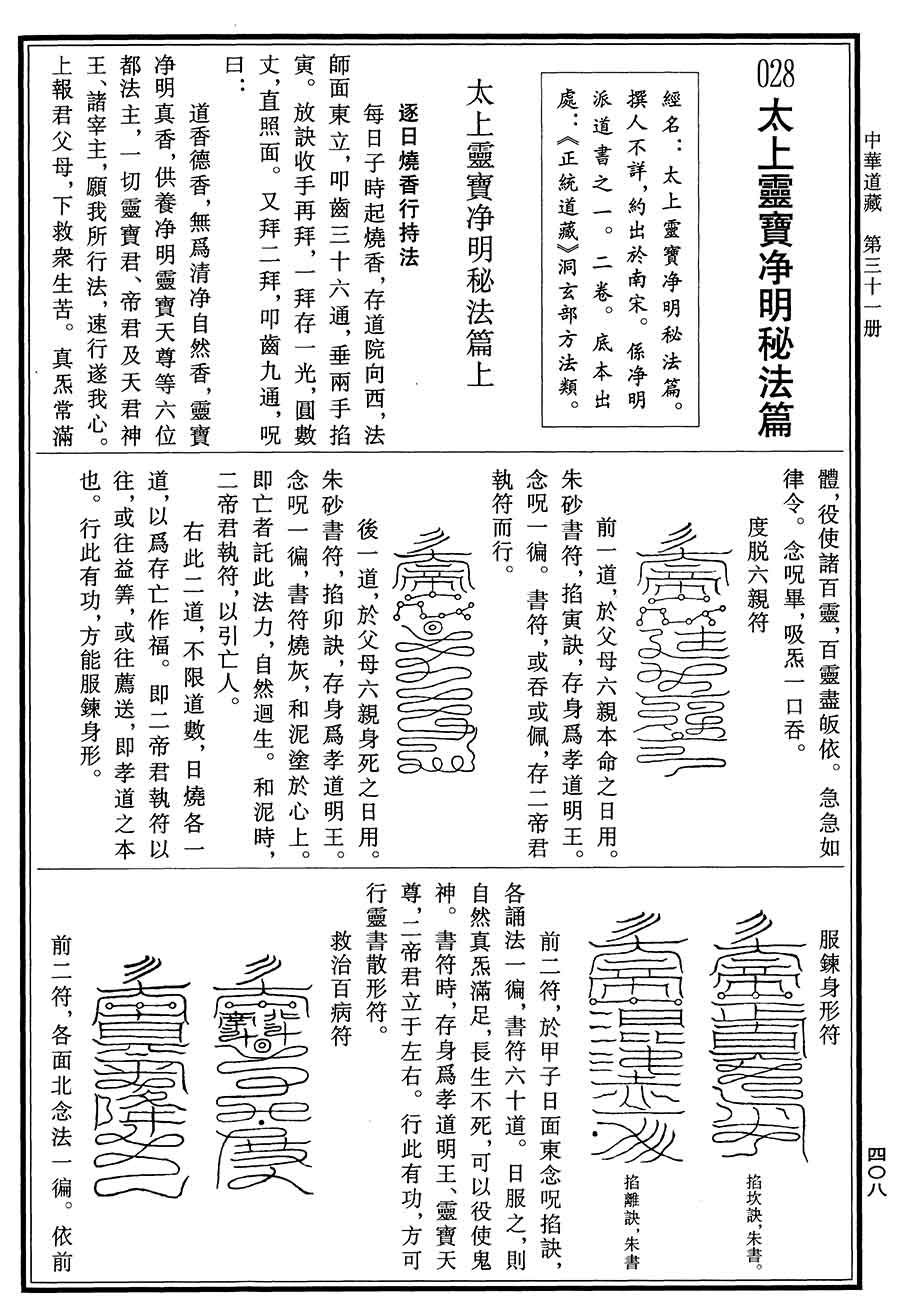 中華道藏　第三十一册
四〇八
028 太上靈寶净明秘法篇
經名：太上靈寶净明秘法篇。
撰人不詳，約出於南宋。係净明
派道書之一。二卷。底本出
處：《正統道藏》洞玄部方法類。
太上靈寶净明秘法篇上
逐日燒香行持法
每日子時起燒香，存道院向西，法
師面東立，叩齒三十六通，垂兩手掐
寅。放訣收手再拜，一拜存一光，圓數
丈，直照面。又拜二拜，叩齒九通，呪
曰：
道香德香，無爲清净自然香，靈寶
净明真香，供養净明靈寶天尊等六位
都法主，一切靈寶君、帝君及天君神
王、諸宰主，願我所行法，速行遂我心。
上報君父母，下救衆生苦。真炁常滿
體，役使諸百靈，百靈盡皈依。急急如
律令。念呪畢，吸炁一口吞。
度脱六親符
前一道，於父母六親本命之日用。
朱砂書符，掐寅訣，存身爲孝道明王。
念呪一徧。書符，或吞或佩，存二帝君
執符而行。
後一道，於父母六親身死之日用。
朱砂書符，掐卯訣，存身爲孝道明王。
念呪一徧，書符燒灰，和泥塗於心上。
即亡者託此法力，自然迴生。和泥時，
二帝君執符，以引亡人。
右此二道，不限道數，日燒各一
道，以爲存亡作福。即二帝君執符以
往，或往益筭，或往薦送，即孝道之本
也。行此有功，方能服鍊身形。
服鍊身形符
掐坎訣，朱書。
掐離訣，朱書
前二符，於甲子日面東念呪掐訣，
各誦法一徧，書符六十道。日服之，則
自然真炁滿足，長生不死，可以役使鬼
神。書符時，存身爲孝道明王、靈寶天
尊，二帝君立于左右。行此有功，方可
行靈書散形符。
救治百病符
前二符，各面北念法一徧。依前